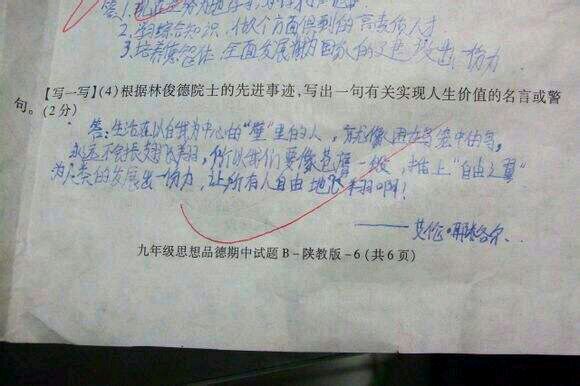 2.学综合知识,做个方面得到的高素质人才
3.培养意,全面发展,为国人的出一份力
【写一写】(4)根据林俊德院士的先进事迹,写出一句有关实现人生价值的名言或警
句。(2分)
答:生活在以自我为中心的“壁”里的人,就像困在鸟笼中的鸟,
永远不能展翅飞翔,所以我们要像艾伦一般,插上“自由之翼”
为人类的发展出一份力,让所有人自由地飞翔啊!
——艾伦·耶格尔
九年级思想品德期中试题B-陕教版-6(共6页)